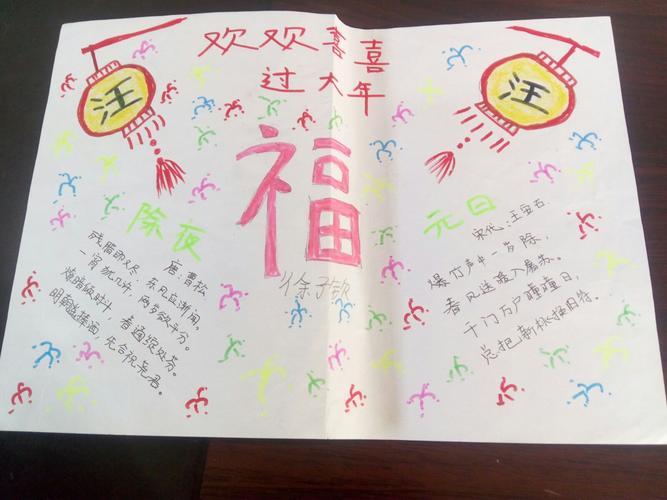 欢观喜喜
过大年
汪
汪
福
徐子钦
除夜
唐:曹松
残腊即又尽,东风应渐闻。
一宵犹几许,两岁欲平分。
燎暗倾时斗,春通绽处芬。
明朝遥捧酒,先合祝尧君。
元日
宋代:王安石
爆竹声中一岁除,
春风送暖入屠苏。
千门万户曈曈日,
总把新桃换旧符。